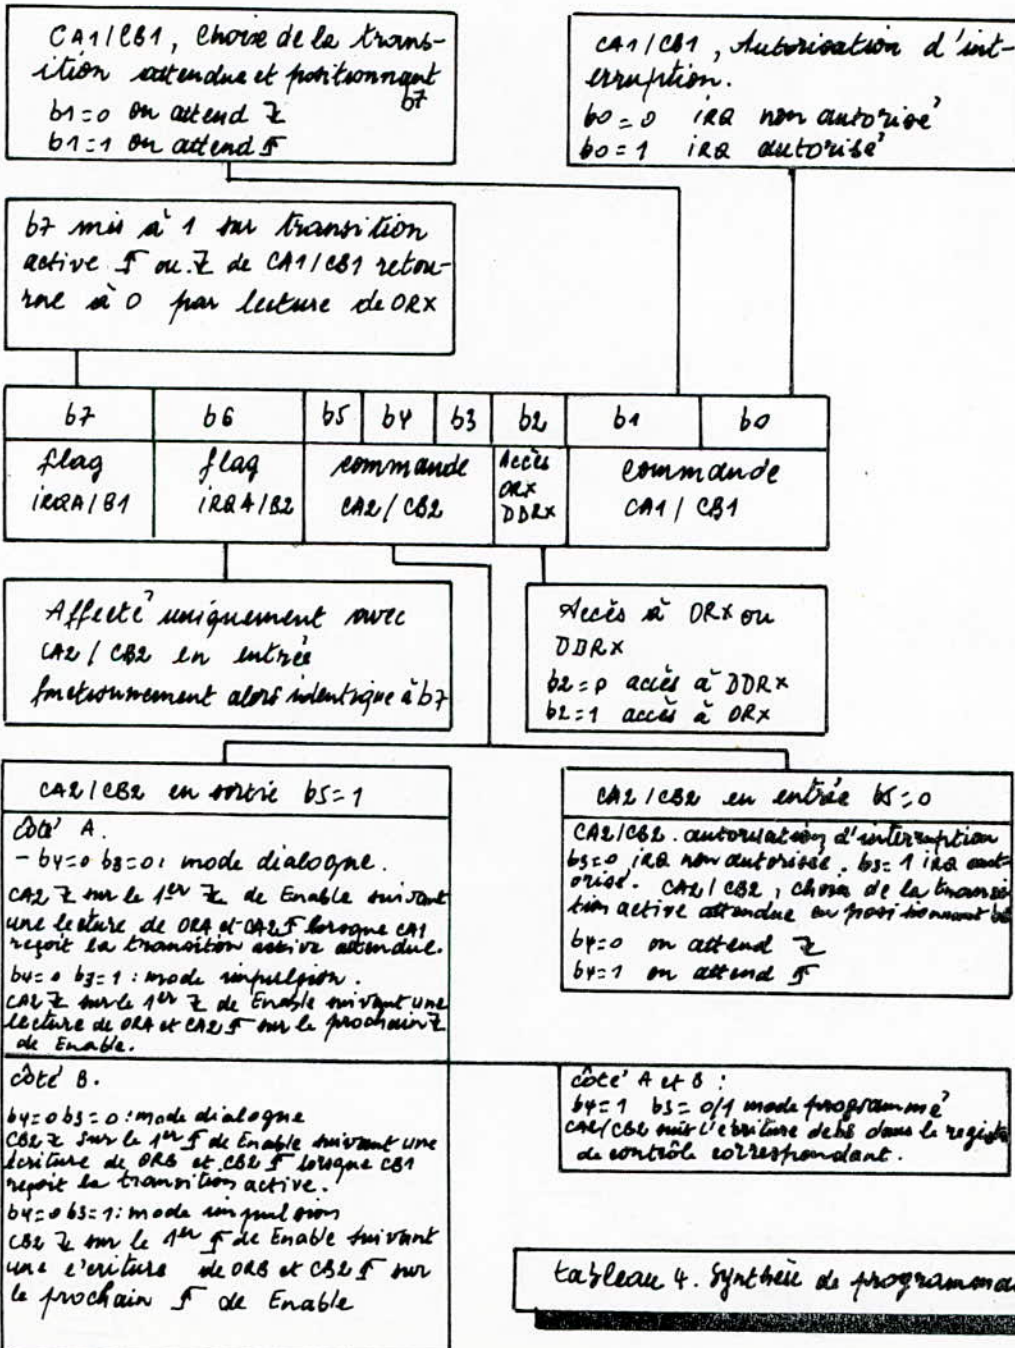 CA1/CB1, Choix de la trans-
ition attendue et positionnant
b7
b1=0 on attend ↓
b1=1 on attend ↑
CA1/CB1, Autorisation d'int-
erruption.
b0=0 iRQ non autorisé
b0=1 iRQ autorisé
b7 mis à 1 sur transition
active ↑ ou ↓ de CA1/CB1 retou-
rne à 0 par lecture de ORX
b7 b6 b5 b4 b3 b2 b1 b0
flag
iRQA/B1
flag
iRQA/B2
commande
CA2/CB2
Accès
ORX
DDRX
commande
CA1/CB1
Affecté uniquement avec
CA2/CB2 en entrée
fonctionnement alors identique à b7
Accès à ORX ou
DDRX
b2=0 accès à DDRX
b2=1 accès à ORX
CA2/CB2 en sortie b5=1
côté A.
- b4=0 b3=0: mode dialogue.
CA2 ↓ sur le 1er ↓ de Enable suivant
une lecture de ORA et CA2 ↑ lorsque CA1
reçoit la transition active attendue.
b4=0 b3=1: mode impulsion.
CA2 ↓ sur le 1er ↓ de Enable suivant une
lecture de ORA et CA2 ↑ sur le prochain ↓
de Enable.
côté B.
b4=0 b3=0: mode dialogue
CB2 ↓ sur le 1er ↑ de Enable suivant une
écriture de ORB et CB2 ↑ lorsque CB1
reçoit la transition active.
b4=0 b3=1: mode impulsion
CB2 ↓ sur le 1er ↑ de Enable suivant
une écriture de ORB et CB2 ↑ sur
le prochain ↑ de Enable
CA2/CB2 en entrée b5=0
CA2/CB2. autorisation d'interruption
b3=0 iRQ non autorisée. b3=1 iRQ aut-
orisé. CA2/CB2, choix de la transi-
tion active attendue en positionnant
b4=0 on attend ↓
b4=1 on attend ↑
côté A et B:
b4=1 b3=0/1 mode programmé
CA2/CB2 suit l'écriture de b3 dans le registre
de contrôle correspondant.
tableau 4. Synthèse de programma